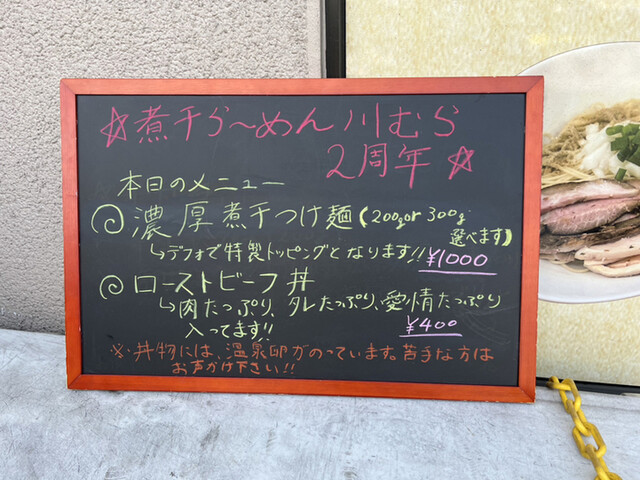 ☆煮干らーめん川むら
2周年☆
本日のメニュー
◎濃厚煮干つけ麺(200gor300g
選べます)
↳デフォで特製トッピングとなります!! ¥1000
◎ローストビーフ丼
↳肉たっぷり、タレたっぷり、愛情たっぷり
入ってます!! ¥400
※・丼物には、温泉卵がのっています。苦手な方は
お声がけ下さい!!